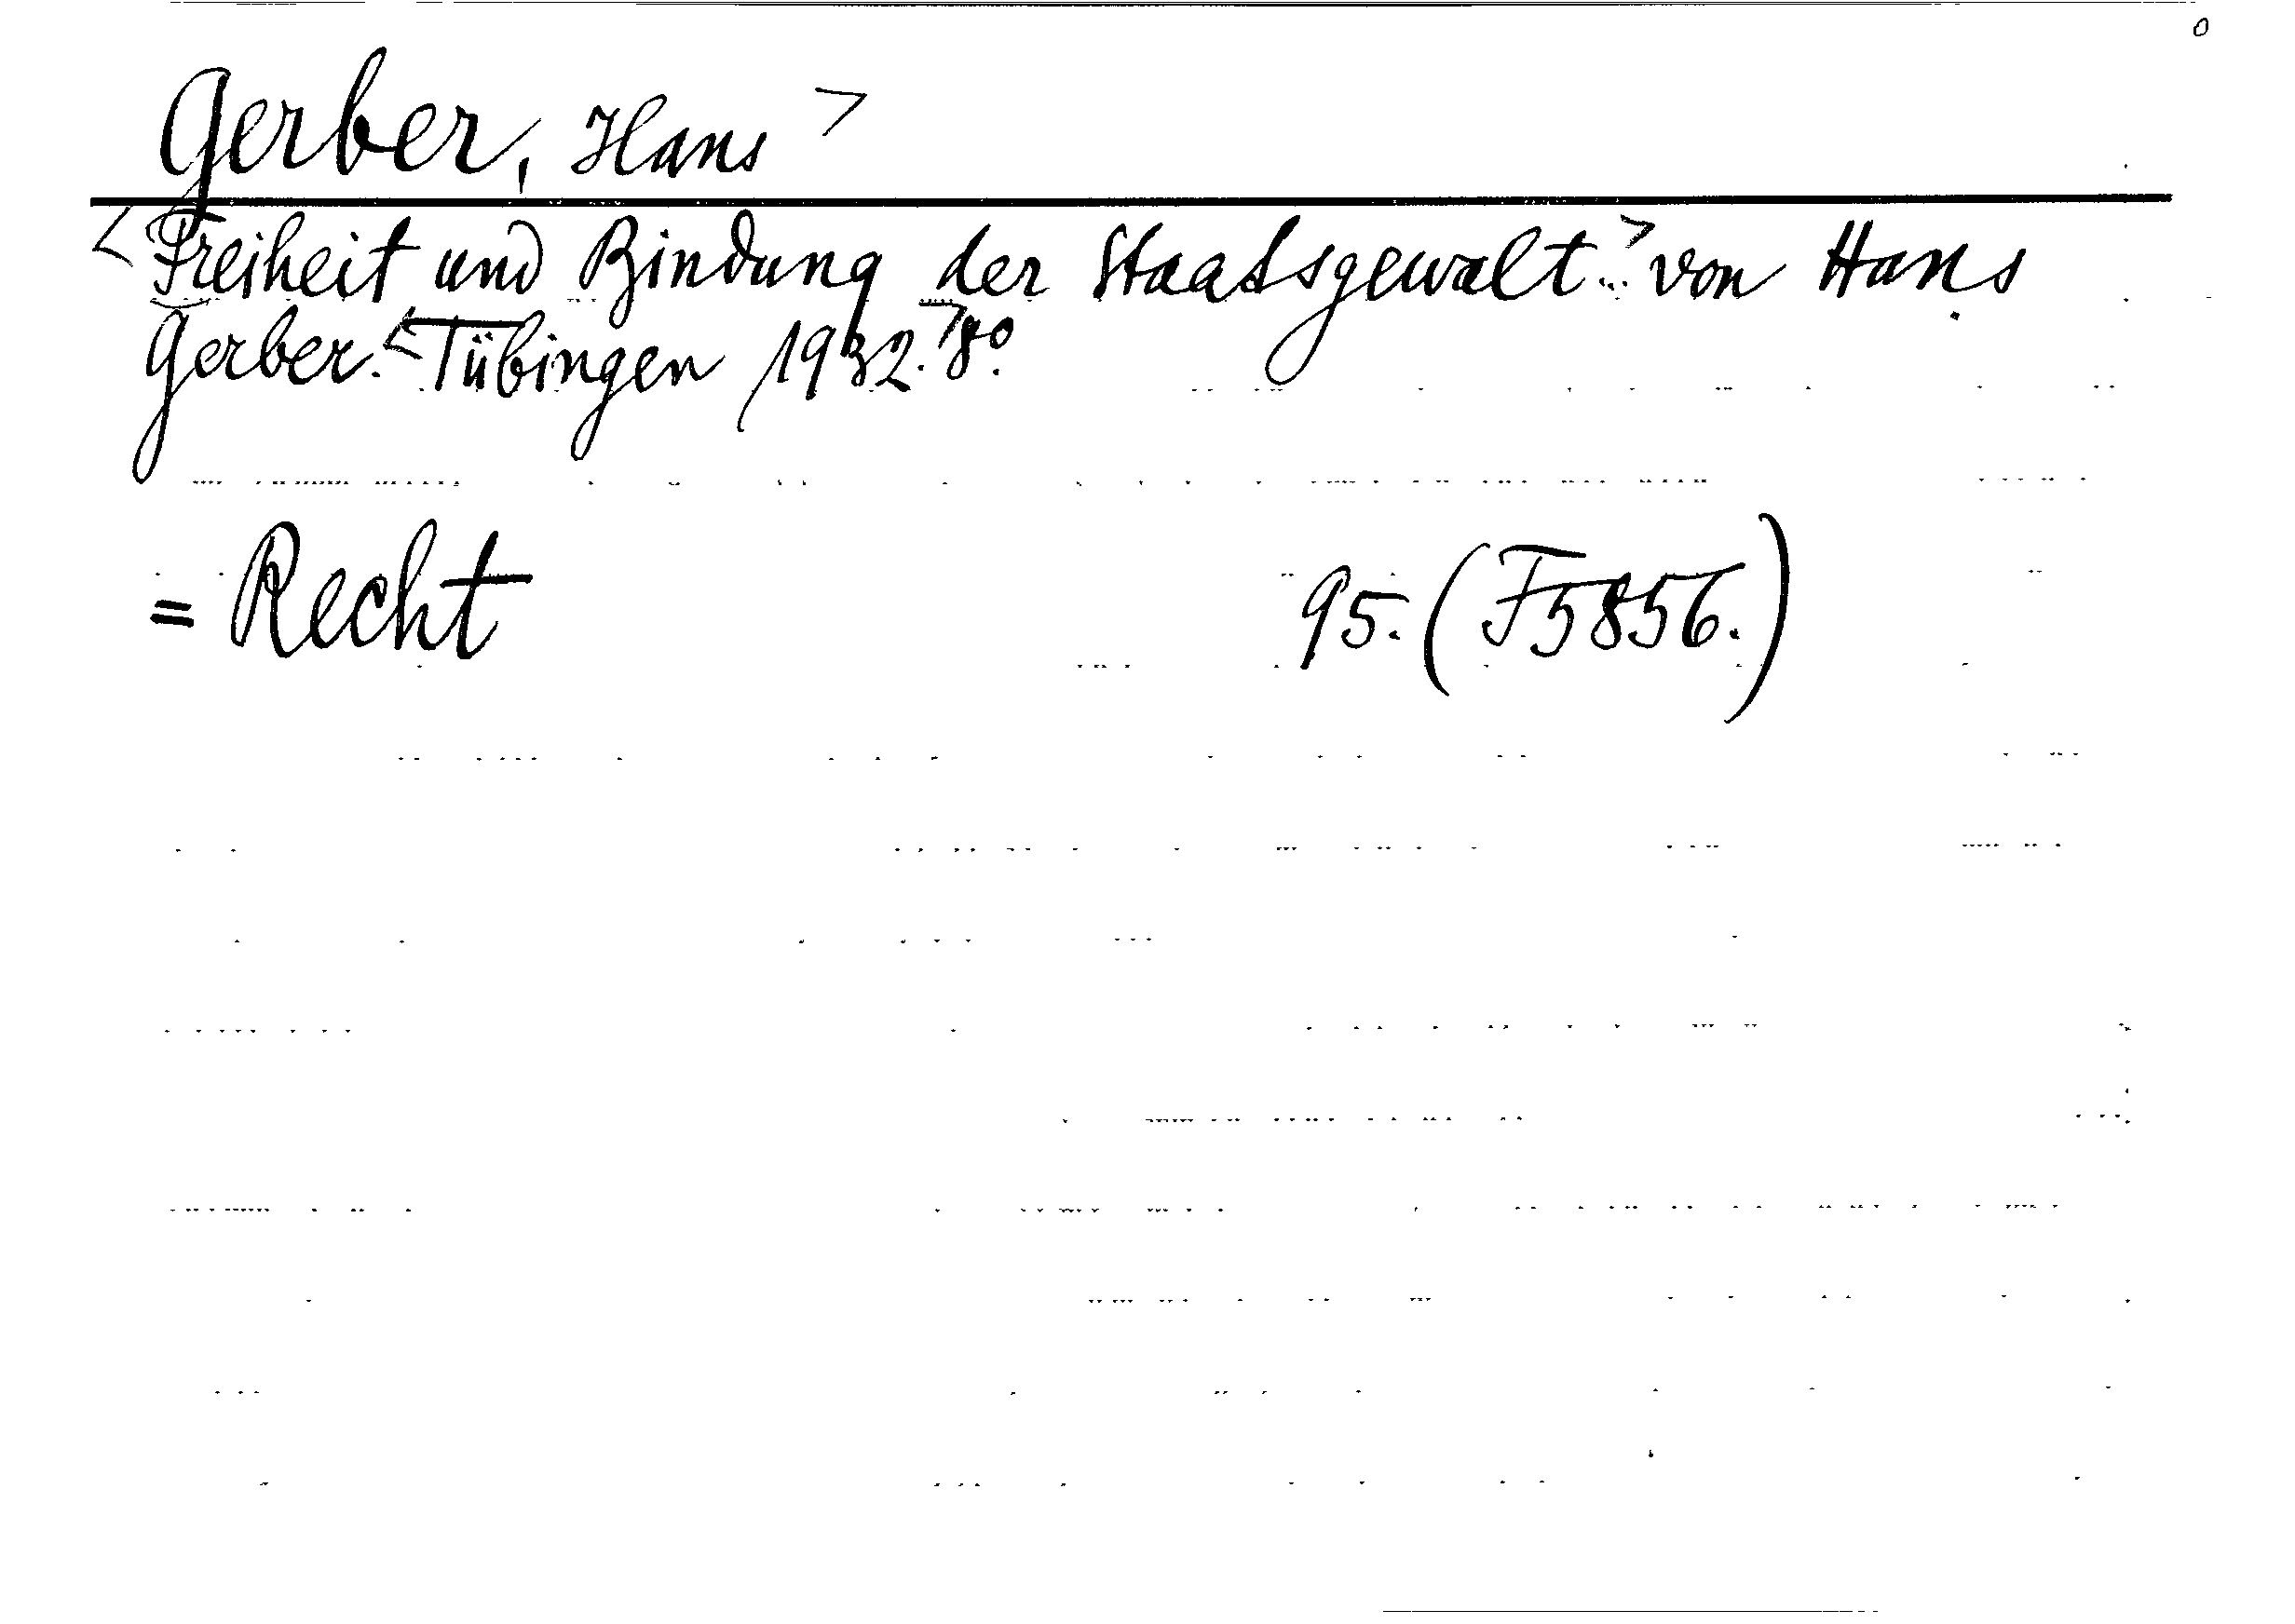 Gerber, Hans >
< Freiheit und Bindung der Staatsgewalt.> von Hans
Gerber. <Tübingen 1932.> 8°.
= Recht 95. (F5856.)